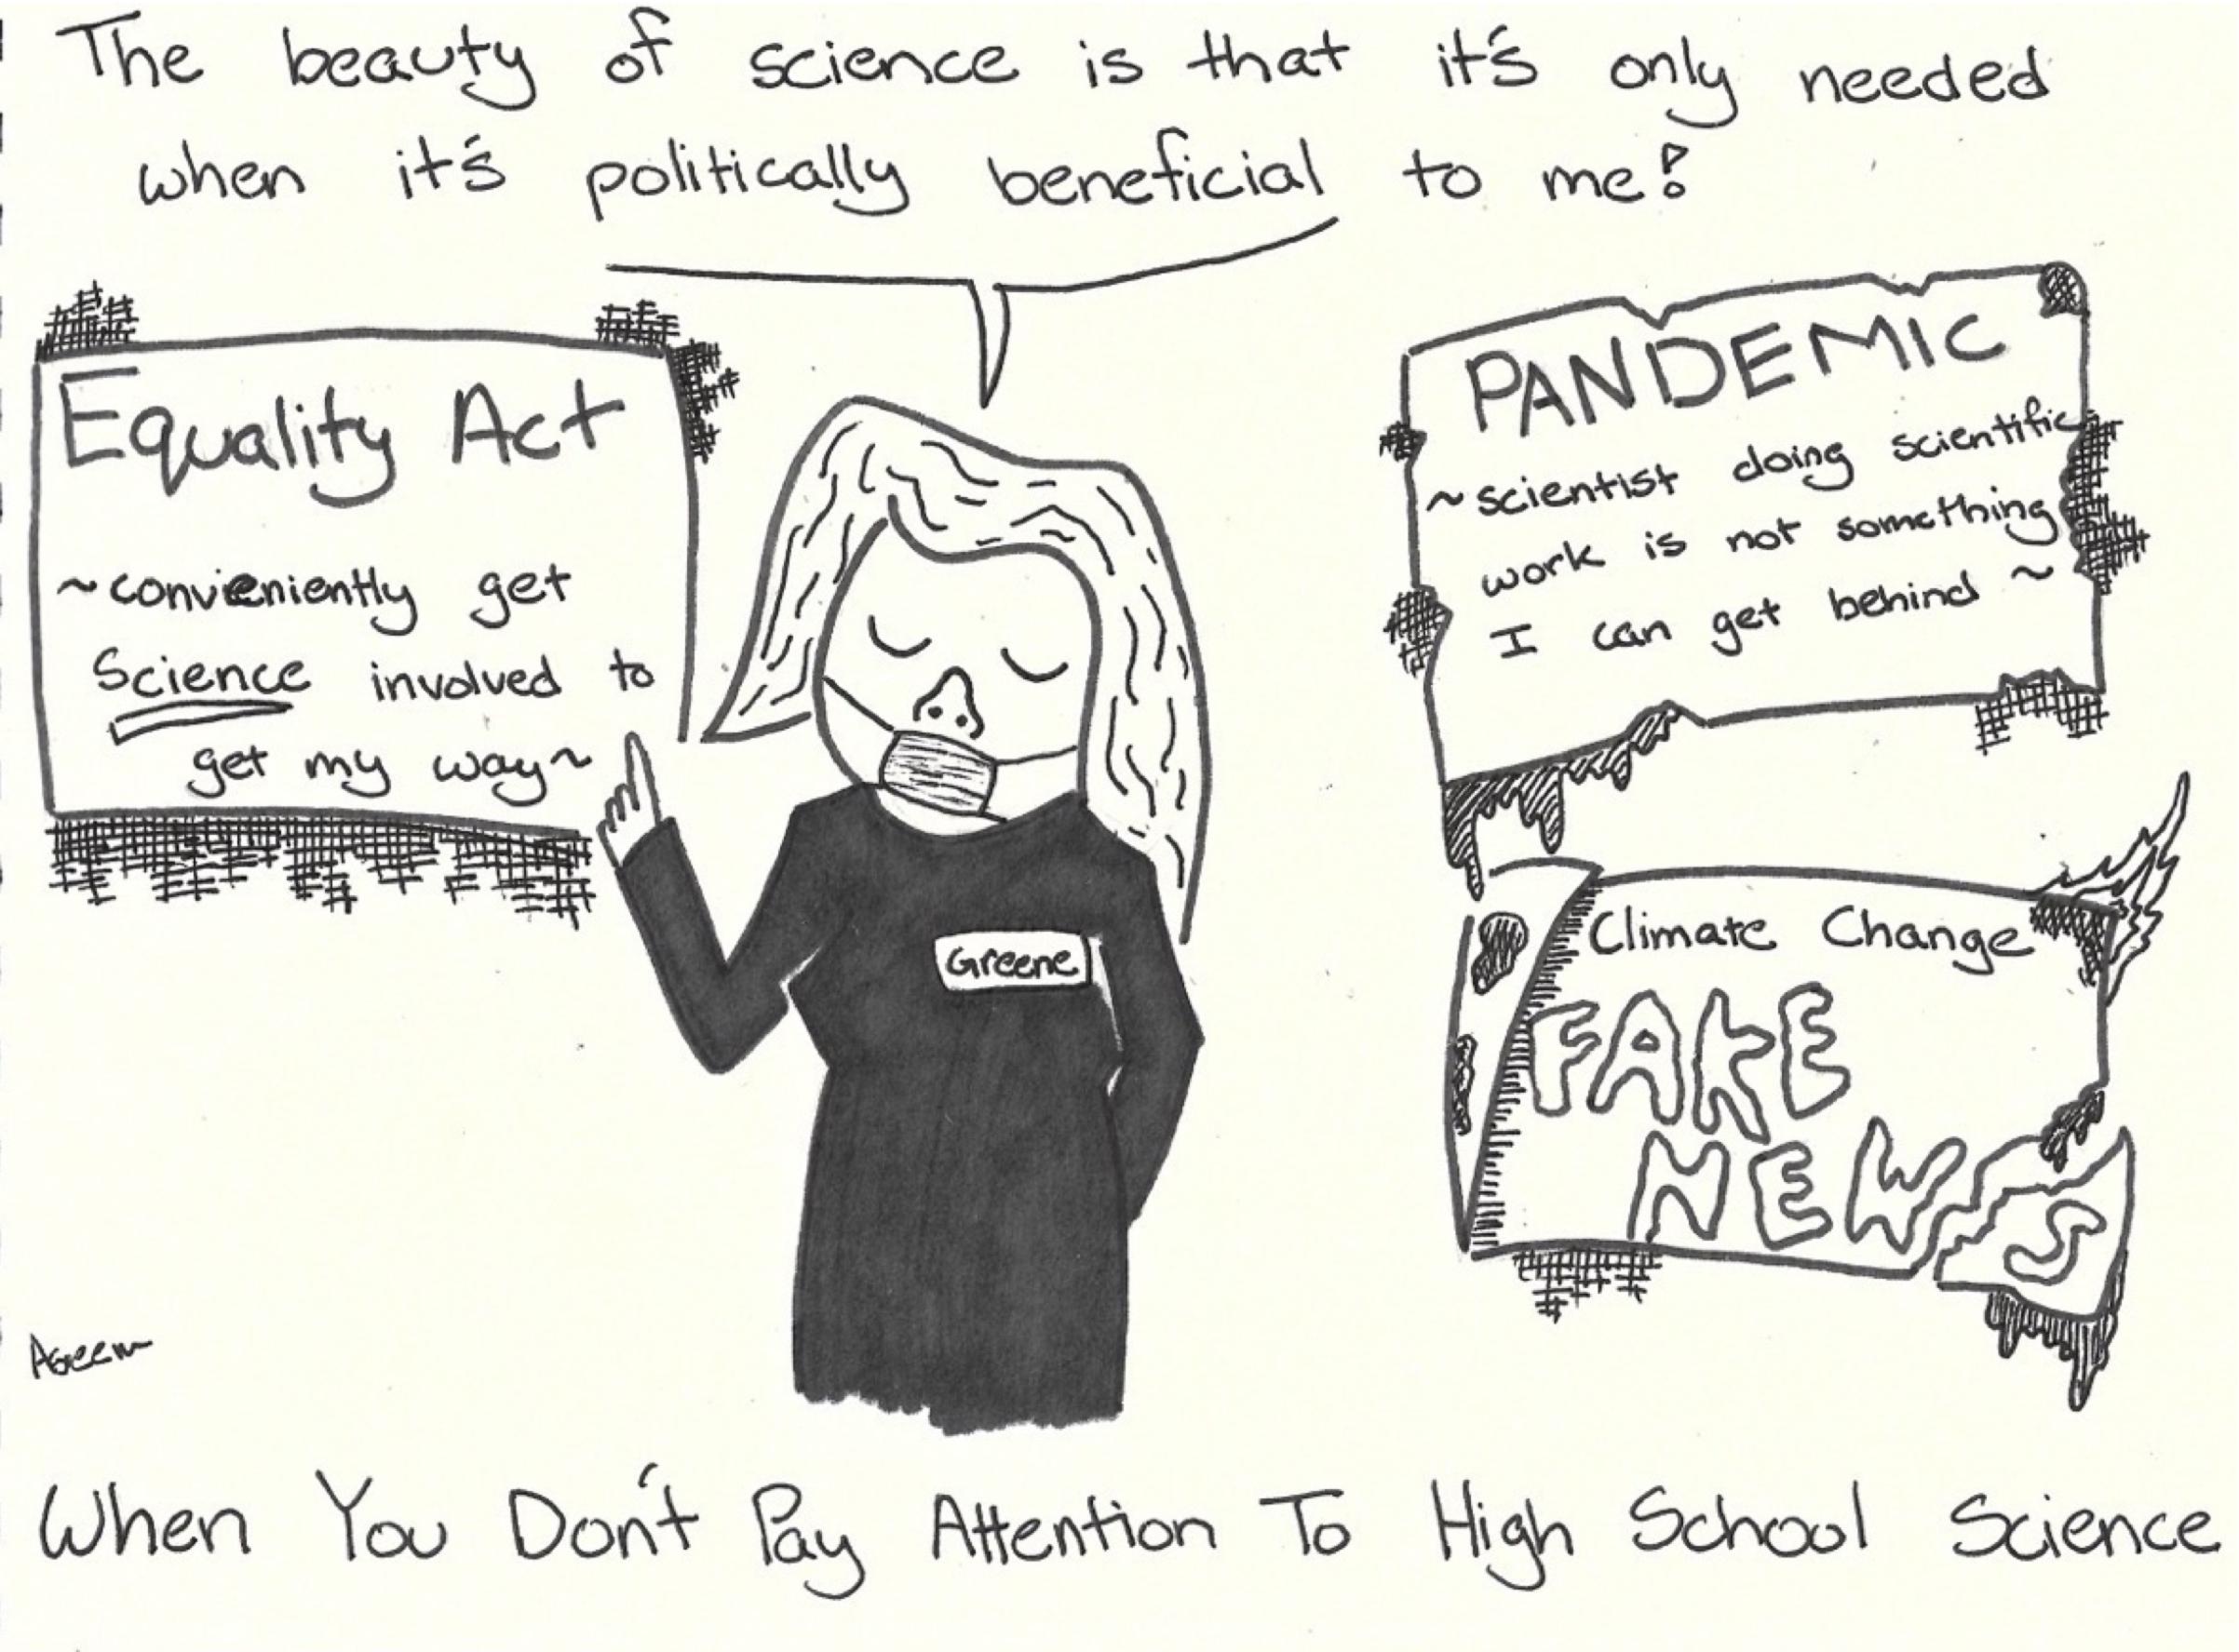 The beauty of science is that it's only needed
when it's politically beneficial to me!
Equality Act
~convieniently get
Science involved to
get my way~
PANDEMIC
~scientist doing scientific
work is not something
I can get behind ~
Greene
Climate Change
FAKE
NEWS
When You Don't Pay Attention To High School Science